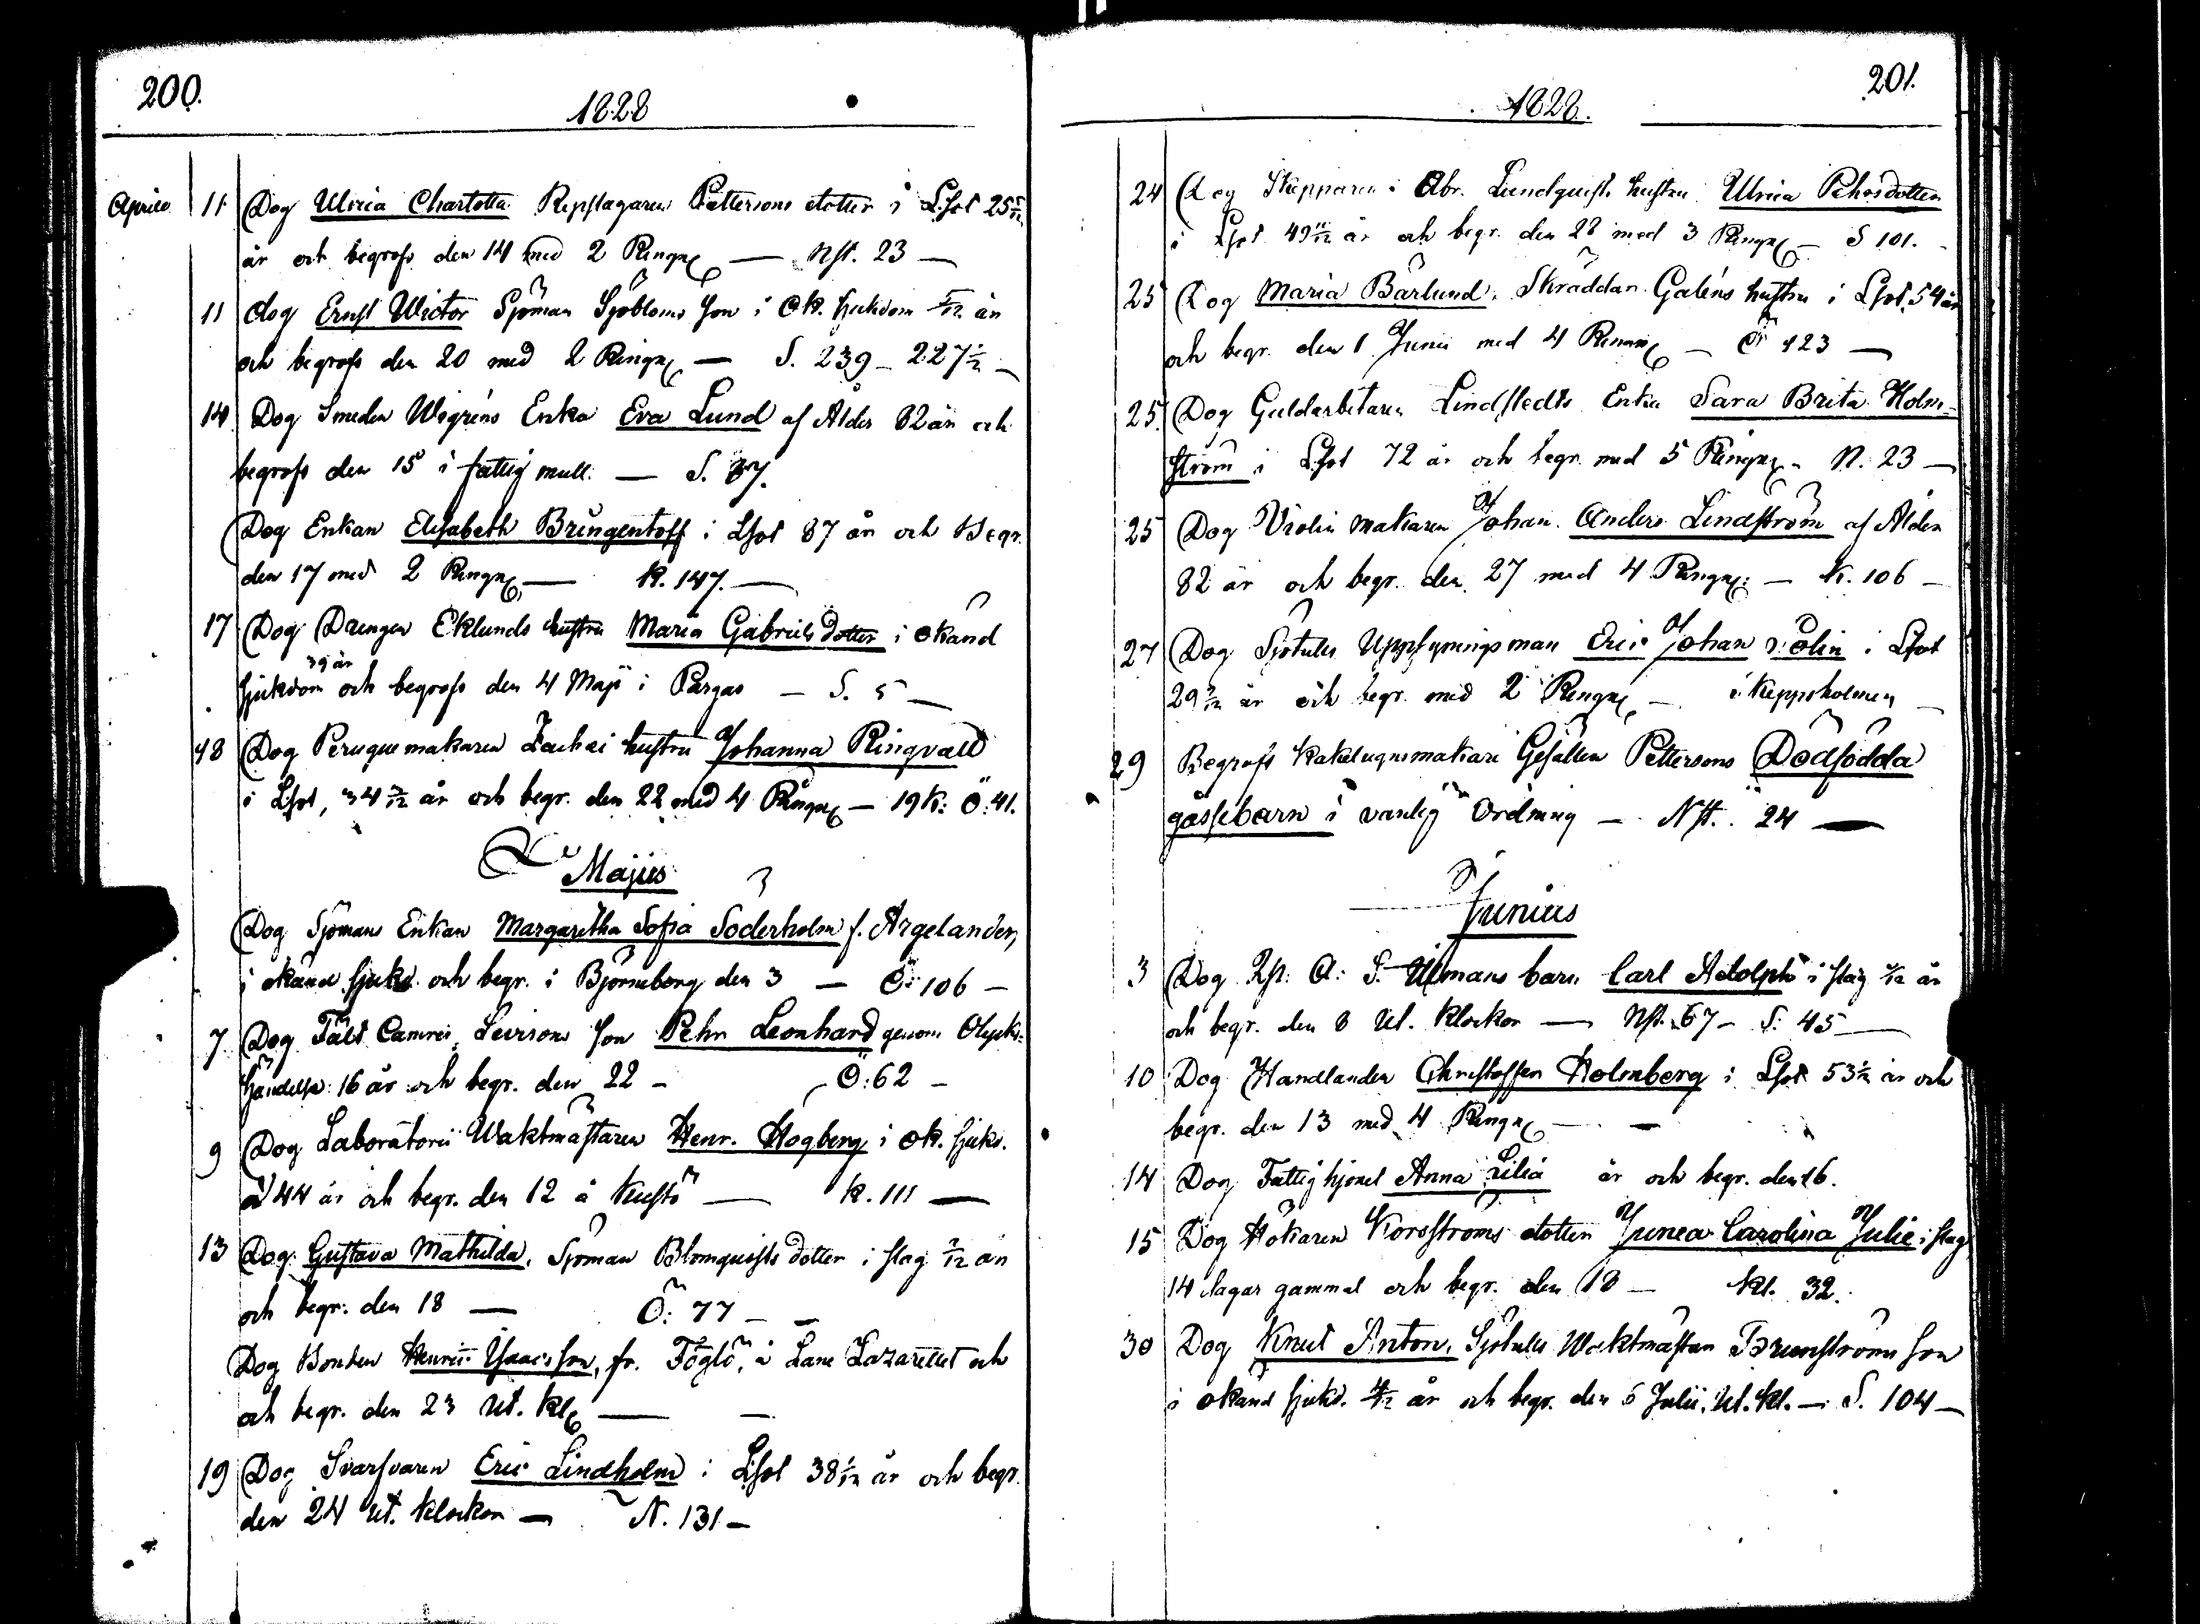 200.
1828
Aprilis 11 Dog Ulrica Charlotta Repslagaren Pettersons dotter i Lsot 25 5/12
år och begrofs den 14 med 2 Ringn. — Nst. 23 —
11 dog Ernst Wictor Sjöman Sjöbloms son i Ok. sjukdom 5/12 år
och begrofs den 20 med 2 Ringn. — S. 239 - 227 1/2 —
14 Dog Smeden Wigréns Enka Eva Lund af Ålder 82 år och
begrofs den 15 i fattig mull. — S. 37.
Dog Enkan Elisabeth Bringentoff i Lsot 87 år och Begr.
den 17 med 2 Ringn. — K. 147. —
17 Dog Drengen Eklunds hustru Maria Gabrielsdotter i okänd
sjukdom 39 år och begrofs den 4 Maji i Pargas — S. 5 —
18 Dog Peruquemakaren Zachei hustru Johanna Ringvall
i Lsot, 34 3/12 år och begr. den 22 med 4 Ringn. — 19 K: Ö: 41.
Majus
Dog Sjömans Enkan Margaretha Sofia Söderholm f. Argelander,
i okänd sjukd. och begr. i Björneborg den 3 — Ö: 106 —
7 Dog Fält Camrer. Levisons son Pehr Leonhard genom Olycks-
händelse 16 år och begr. den 22 — Ö: 62 —
9 Dog Laboratorii Waktmästaren Henr. Högberg i ok. sjukd.
44 år och begr. den 12 å Kustö — K. 111 —
13 Dog Gustava Mathilda, Sjöman Blomquists dotter i slag 7/12 år
och begr. den 18 — Ö: 77 —
Dog Bonden Henric Isaacsson, fr. Föglö, å Läne Lazarettet och
och begr. den 23 Ut. Kl. —
19 Dog Svarfvaren Eric Lindholm i Lsot 38 1/12 år och begr.
den 24 Ut. Klockor — N. 131 —
201.
1828.
24 Dog Skepparen Abr. Lundquists hustru Ulrica Pehrsdotter
i Lsot 49 11/12 år och begr. den 28 med 3 Ringn. — S 101. —
25 Dog Maria Bärlund, Skräddar Galéns hustru i Lsot, 54 år
och begr. den 1 Junii med 4 Ringn. — Ö 123 —
25. Dog Guldarbetaren Lindstedts Enka Sara Brita Holm-
ström i Lsot 72 år och begr. med 5 Ringn. N. 23 —
25 Dog Violin makaren Johan Anders Lindström af Ålder
82 år och begr. den 27 med 4 Ringn. — K. 106 —
27 Dog Sjötulls Uppsyningsman Eric Johan Polin i Lsot
29 7/12 år och begr. med 2 Ringn. — å Keppsholmen
29 Begrofs Kakelugnsmakare Gesällen Pettersons Dödfödda
gossebarn i vanlig Ordning — Nst. 24 —
Junius
3 Dog A: S. Ulmans barn Carl Adolph i slag 3/12 år
och begr. den 8 Ut. Klockor — Nst. 67 — S: 45 —
10 Dog Handlanden Christoffer Holmberg i Lsot 53 1/2 år och
begr. den 13 med 4 Ringn. —
14 Dog Fattighjonet Anna Lilia år och begr. den 16.
15 Dog Hökaren Korsströms dotter Junea Carolina Julie i slag
14 dagar gammal och begr. den 18 — Kl. 32.
30 Dog Knut Anton, Sjötulls Waktmästar Brunströms son
i okänd sjukd. 4/12 år och begr. den 6 Julii. Ut. Kl. — S. 104 —